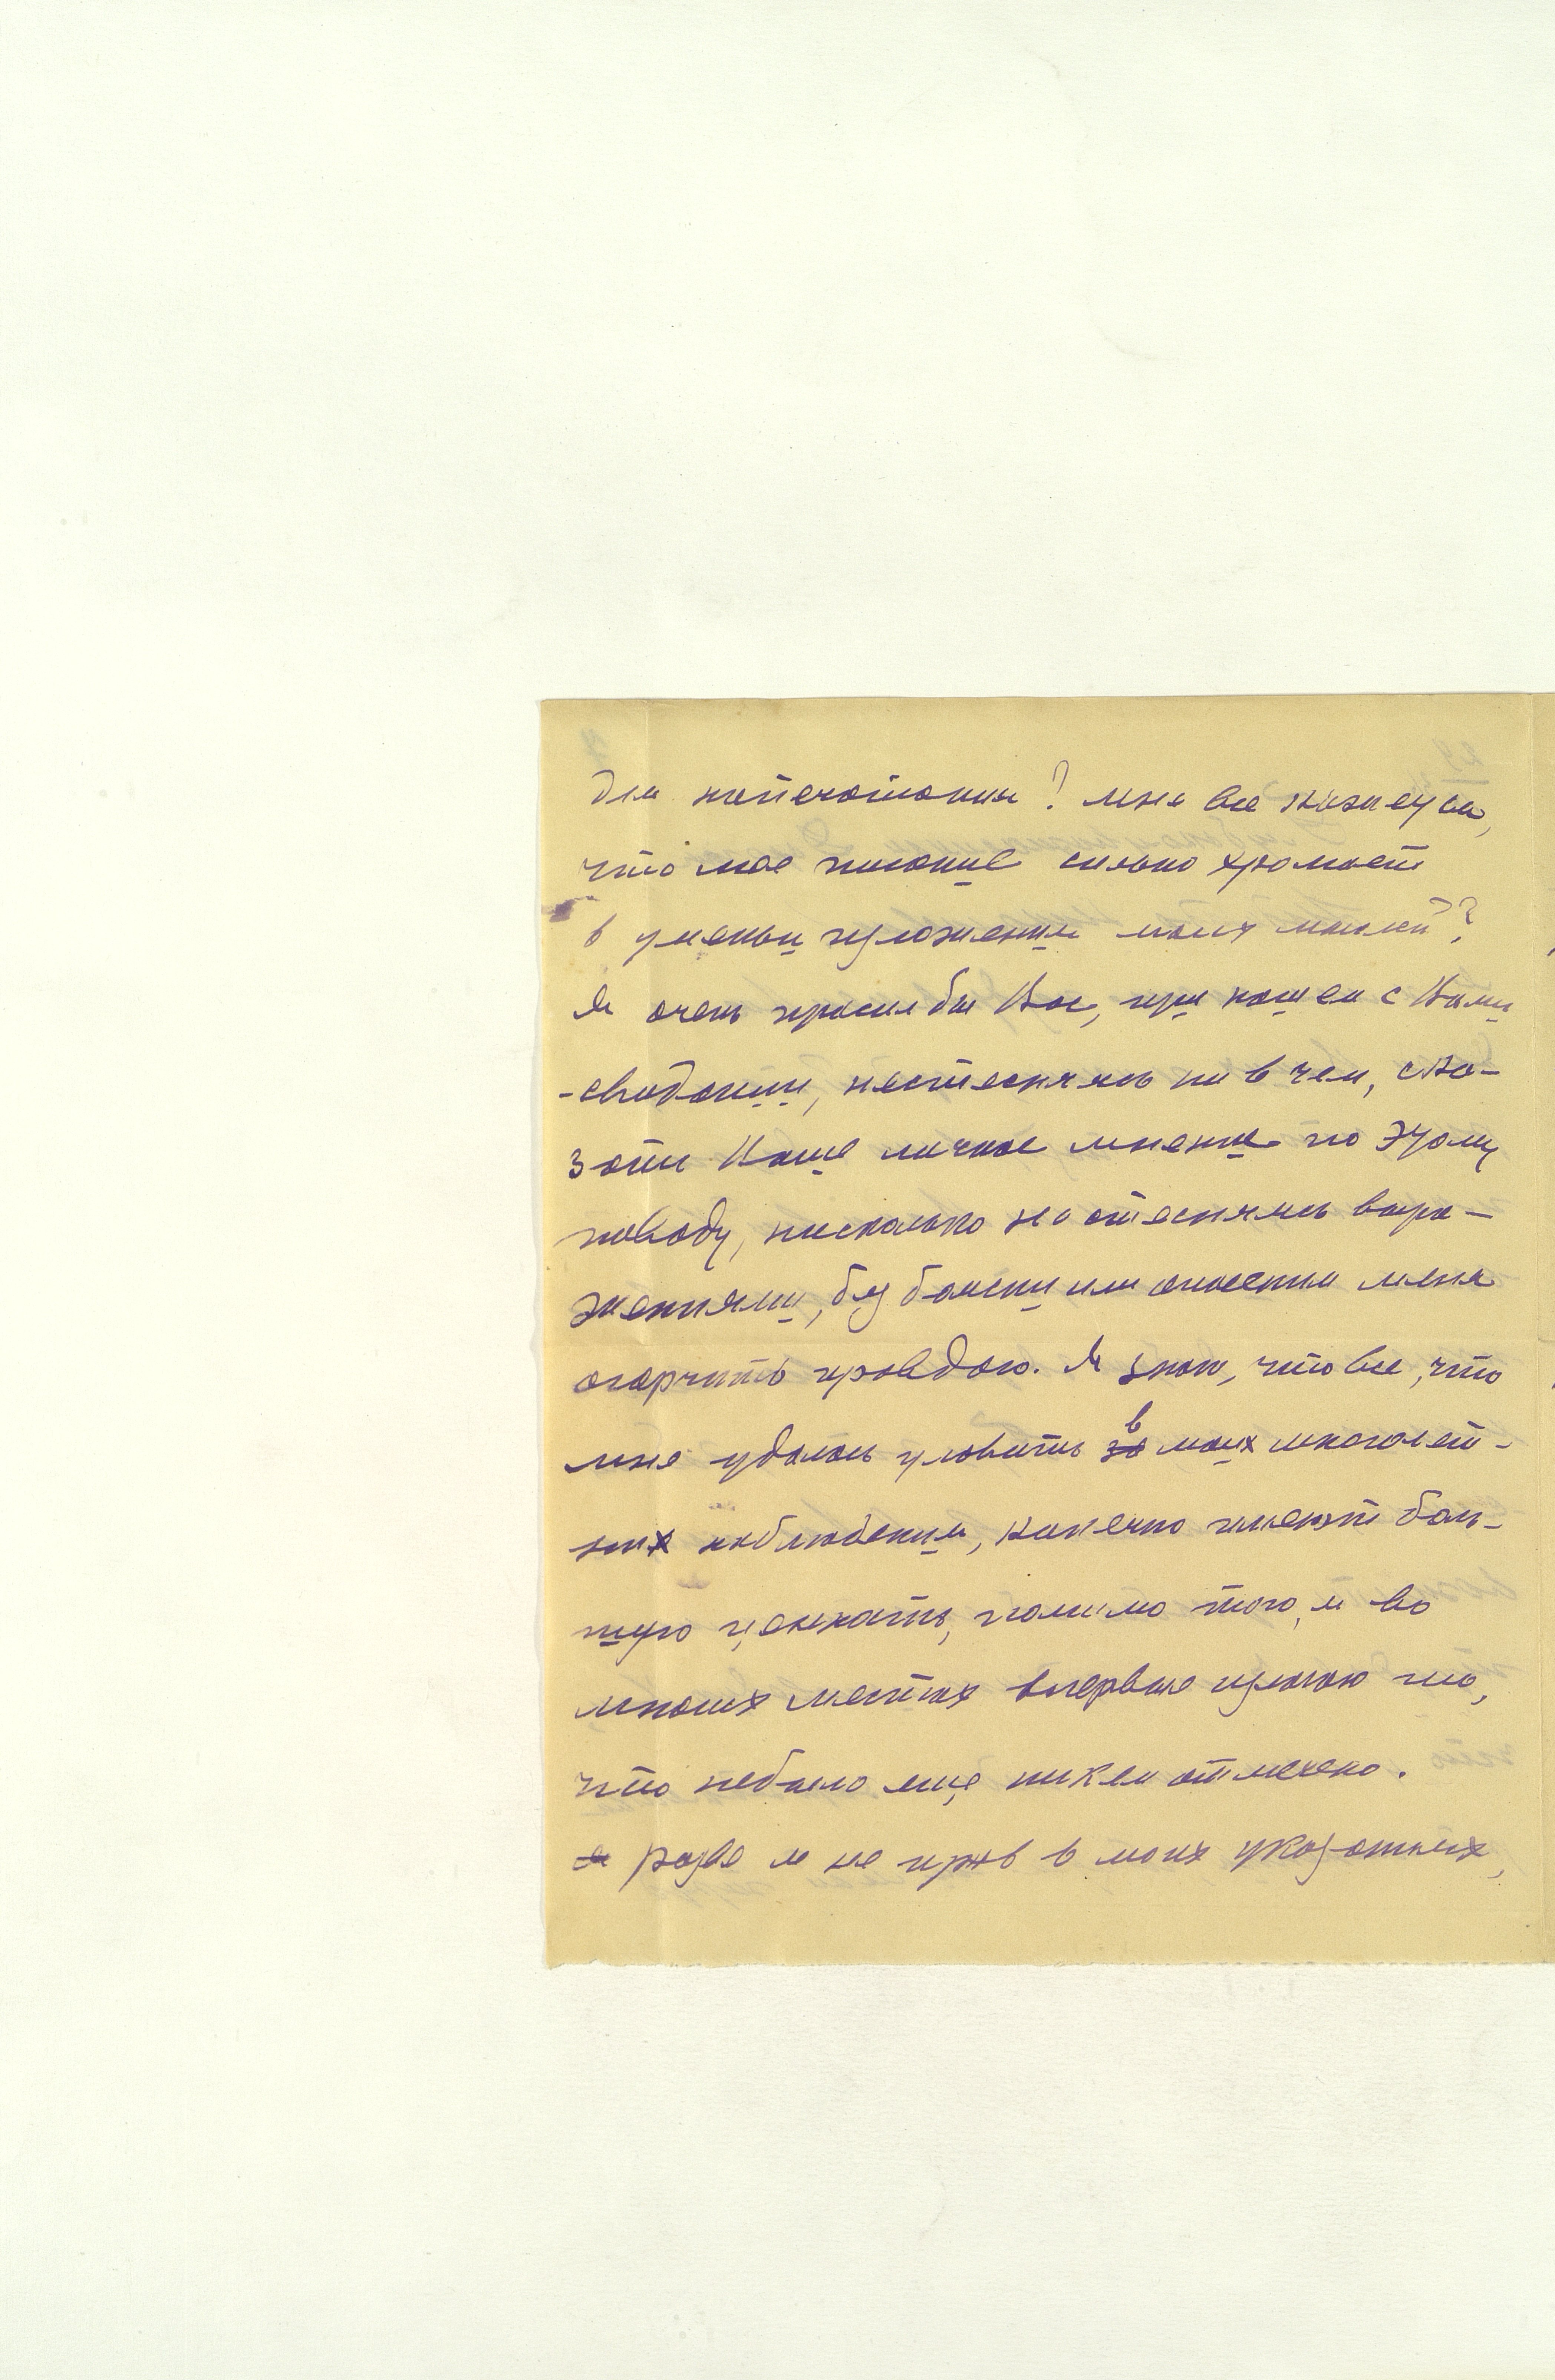 для напечатания? мне все кажется,
что мое писание сильно хромает
в умении изложении моих мыслей?
Я очень просил бы Вас, при нашем с Вами
-свидании, нестесняясь ни в чем, ска-
зать Ваше личное мнение по этому
поводу, нисколько не стесняясь выра-
жениями, без боязни или опасения меня
огорчить правдою. Я знаю, что все, что
мне удалось уловить за в моих многолет-
них наблюдениях, конечно имеют боль-
шую ценность, помимо того, я во
многих местах впервые излагаю то,
что небыло еще никем отмечено.
я разве я не прав в моих указанных,